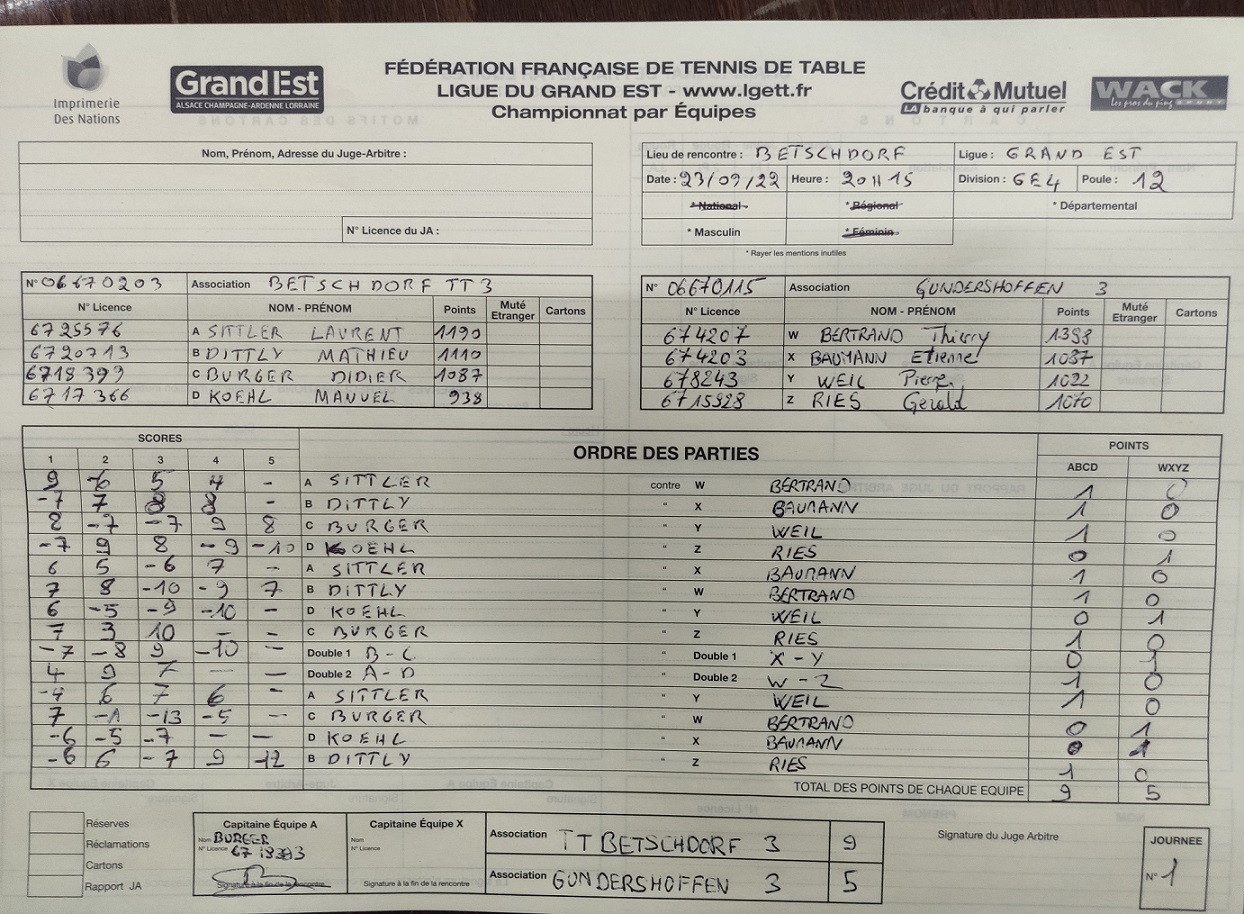 Imprimerie
Des Nations
Grand Est
ALSACE CHAMPAGNE-ARDENNE LORRAINE
FÉDÉRATION FRANÇAISE DE TENNIS DE TABLE
LIGUE DU GRAND EST - www.lgett.fr
Championnat par Équipes
Crédit Mutuel
LA banque à qui parler
WACK
Les pros du ping SPORT
Nom, Prénom, Adresse du Juge-Arbitre :
N° Licence du JA :
Lieu de rencontre : BETSCHDORF Ligue : GRAND EST
Date : 23/09/22 Heure : 20H15 Division : GE4 Poule : 12
* National * Régional * Départemental
* Masculin * Féminin
* Rayer les mentions inutiles
N° 06670203 Association BETSCHDORF TT 3
N° Licence NOM - PRÉNOM Points Muté Etranger Cartons
6725576 A SITTLER LAURENT 1190
6720713 B DITTLY MATHIEU 1110
6718399 C BURGER DIDIER 1087
6717366 D KOEHL MANUEL 938
N° 06670115 Association GUNDERSHOFFEN 3
N° Licence NOM - PRÉNOM Points Muté Etranger Cartons
674207 W BERTRAND Thierry 1398
674203 X BAUMANN Etienne 1087
678243 Y WEIL Pierre 1022
6715928 Z RIES Gerald 1070
SCORES ORDRE DES PARTIES POINTS
1 2 3 4 5 ABCD WXYZ
9 -6 5 4 - A SITTLER contre W BERTRAND 1 0
-7 7 8 8 - B DITTLY " X BAUMANN 1 0
8 -7 -7 9 8 C BURGER " Y WEIL 1 0
-7 9 8 -9 -10 D KOEHL " Z RIES 0 1
6 5 -6 7 - A SITTLER " X BAUMANN 1 0
7 8 -10 -9 7 B DITTLY " W BERTRAND 1 0
6 -5 -9 -10 - D KOEHL " Y WEIL 0 1
7 3 10 - - C BURGER " Z RIES 1 0
-7 -8 9 -10 - Double 1 B-C " Double 1 X-Y 0 1
4 9 7 - - Double 2 A-D " Double 2 W-Z 1 0
-4 6 7 6 - A SITTLER " Y WEIL 1 0
7 -1 -13 -5 - C BURGER " W BERTRAND 0 1
-6 -5 -7 - - D KOEHL " X BAUMANN 0 1
-6 6 -7 9 12 B DITTLY " Z RIES 1 0
TOTAL DES POINTS DE CHAQUE EQUIPE 9 5
Réserves
Réclamations
Cartons
Rapport JA
Capitaine Équipe A
Nom BURGER
N° Licence 67 18393
Signature à la fin de la rencontre
Capitaine Équipe X
Nom
N° Licence
Signature à la fin de la rencontre
Association TT BETSCHDORF 3 9
Association GUNDERSHOFFEN 3 5
Signature du Juge Arbitre
JOURNEE
N° 1